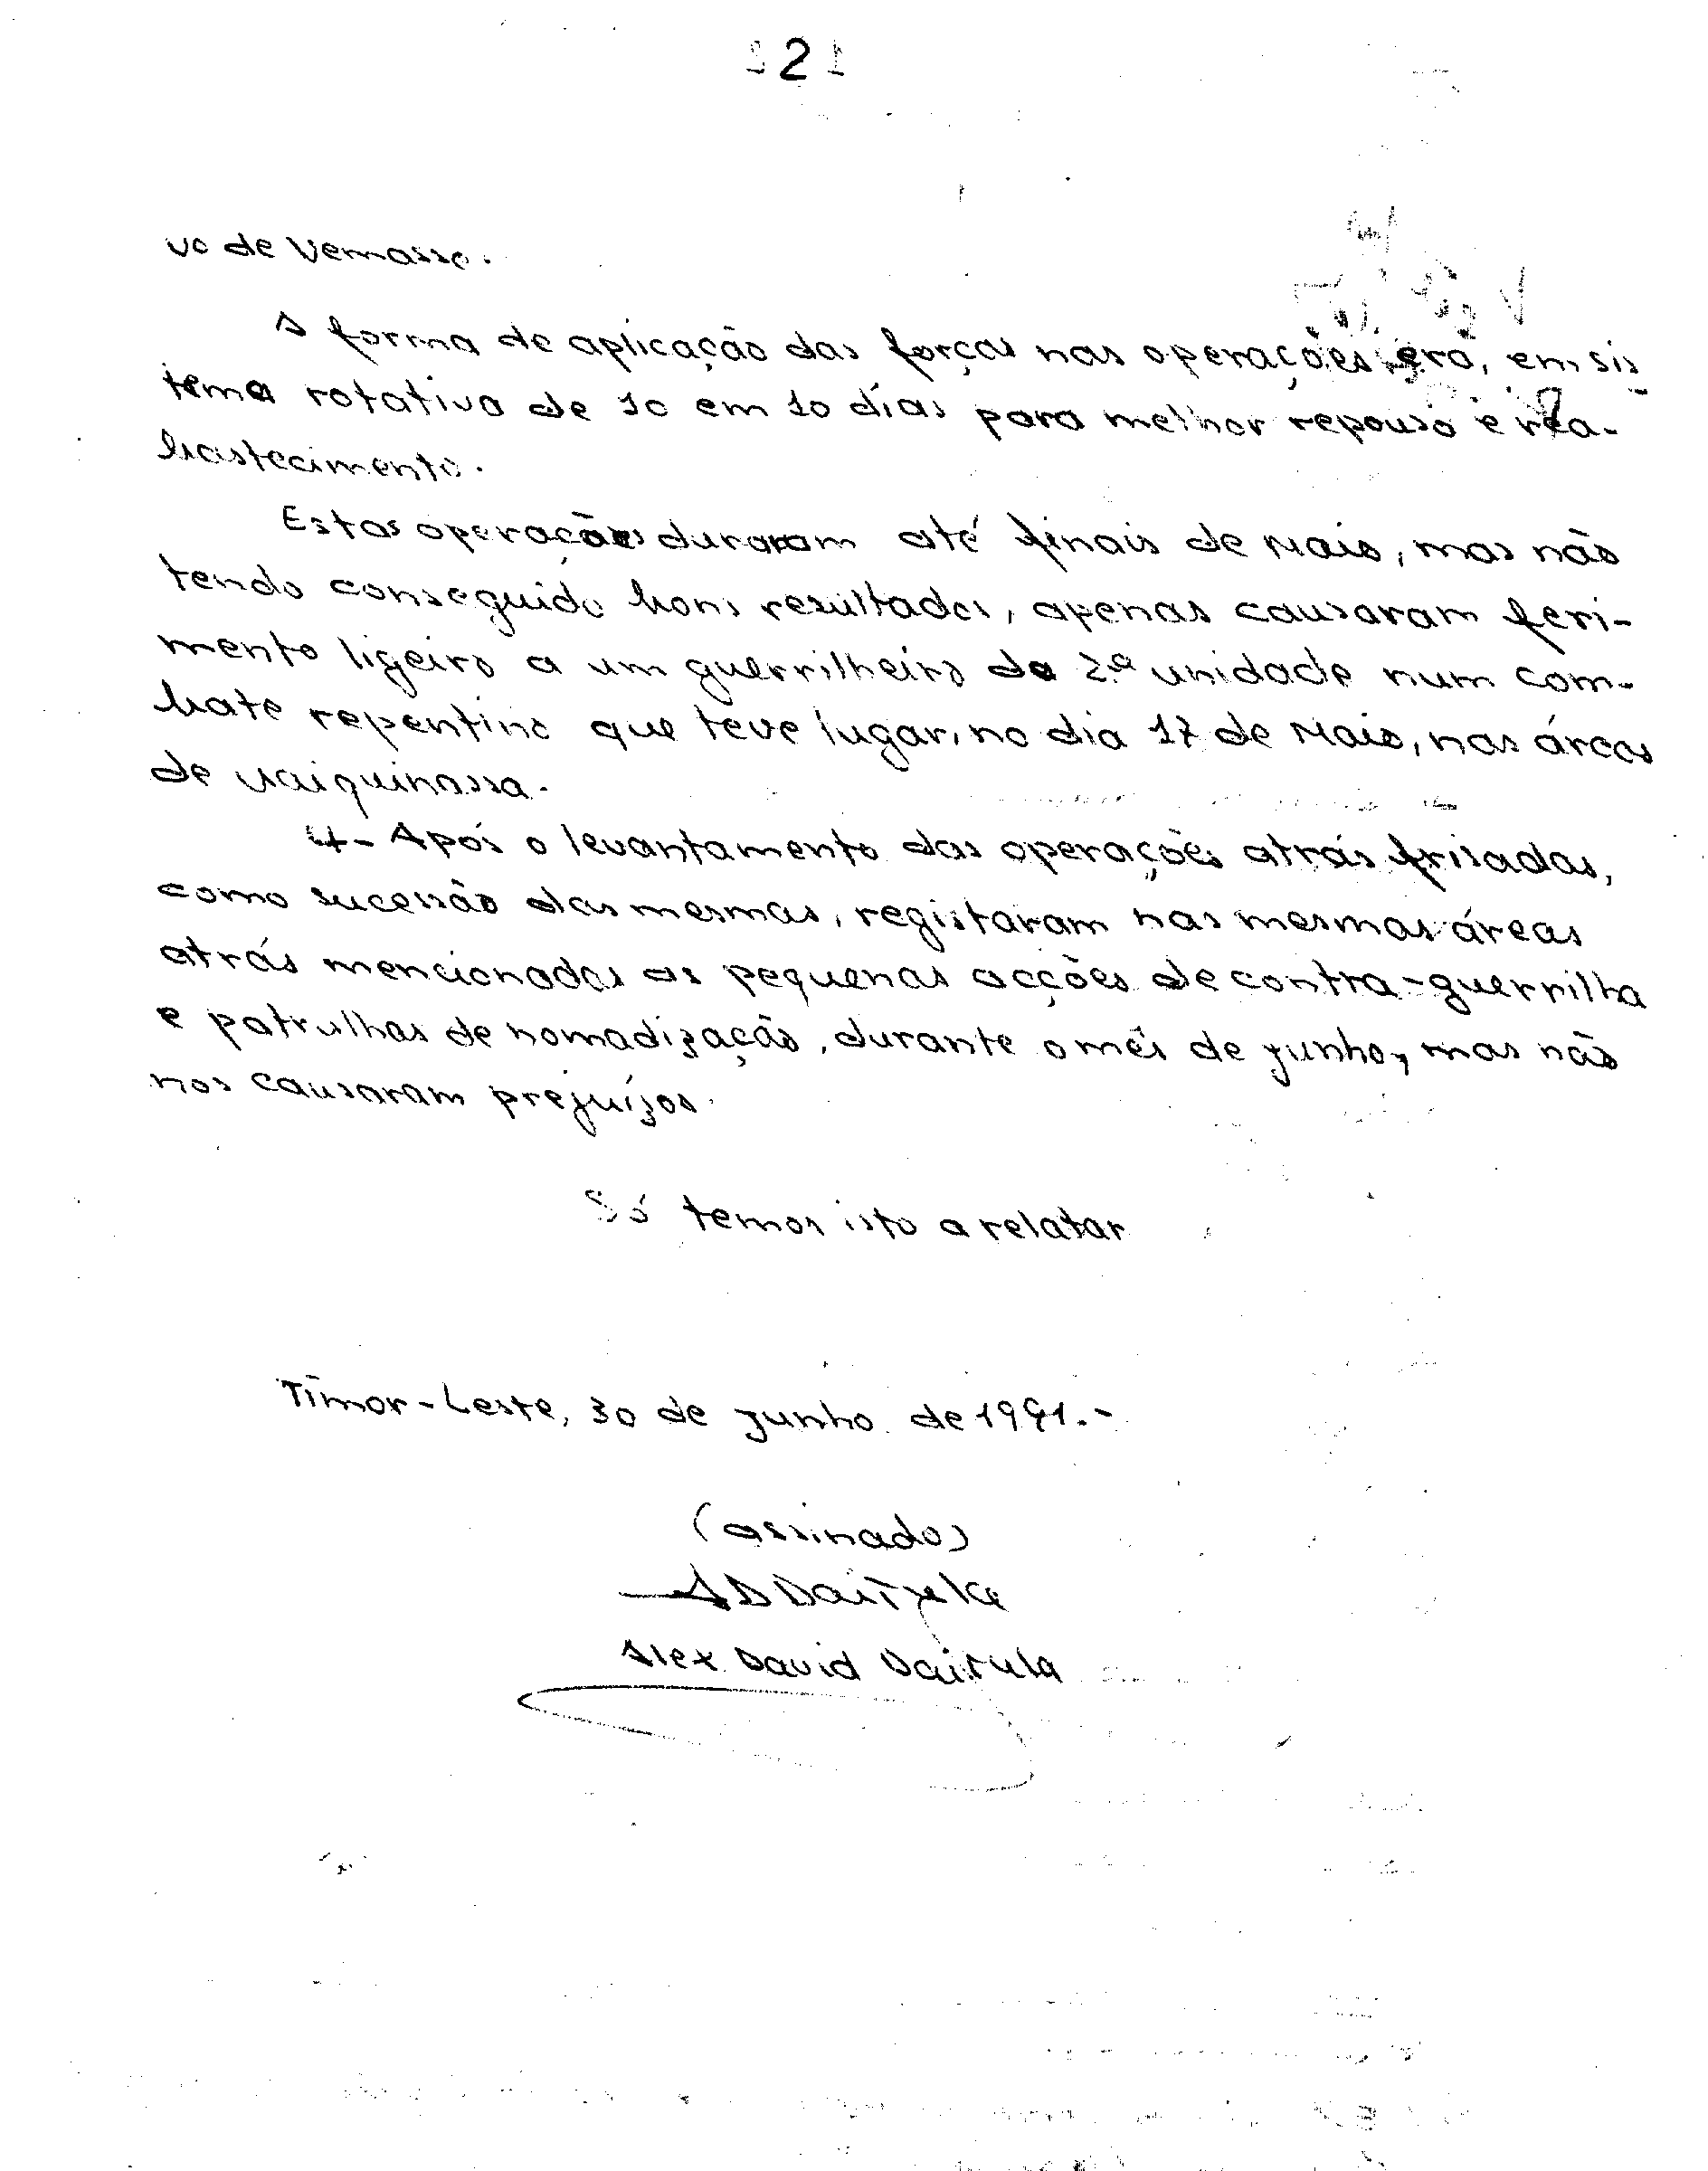 2
vo de Vemasse.
A forma de aplicação das forças nas operações era, em sis-
tema rotativo de 10 em 10 días para melhor repouso e rea-
bastecimento.
Estas operações duraram até finais de Maio, mas não
tendo conseguido bons resultados, apenas causaram feri-
mento ligeiro a um guerrilheiro da 2.ª unidade num com-
bate repentino que teve lugar, no dia 17 de Maio, nas áreas
de Uaiquinassa.
4- Após o levantamento das operações atrás frisadas,
como sucessão das mesmas, registaram nas mesmas áreas
atrás mencionadas as pequenas acções de contra-guerrilha
e patrulhas de nomadização, durante o mês de junho, mas não
nos causaram prejuízos.
Só temos isto a relatar
Timor-Leste, 30 de junho de 1991.-
(assinado)
Alex David Daitula